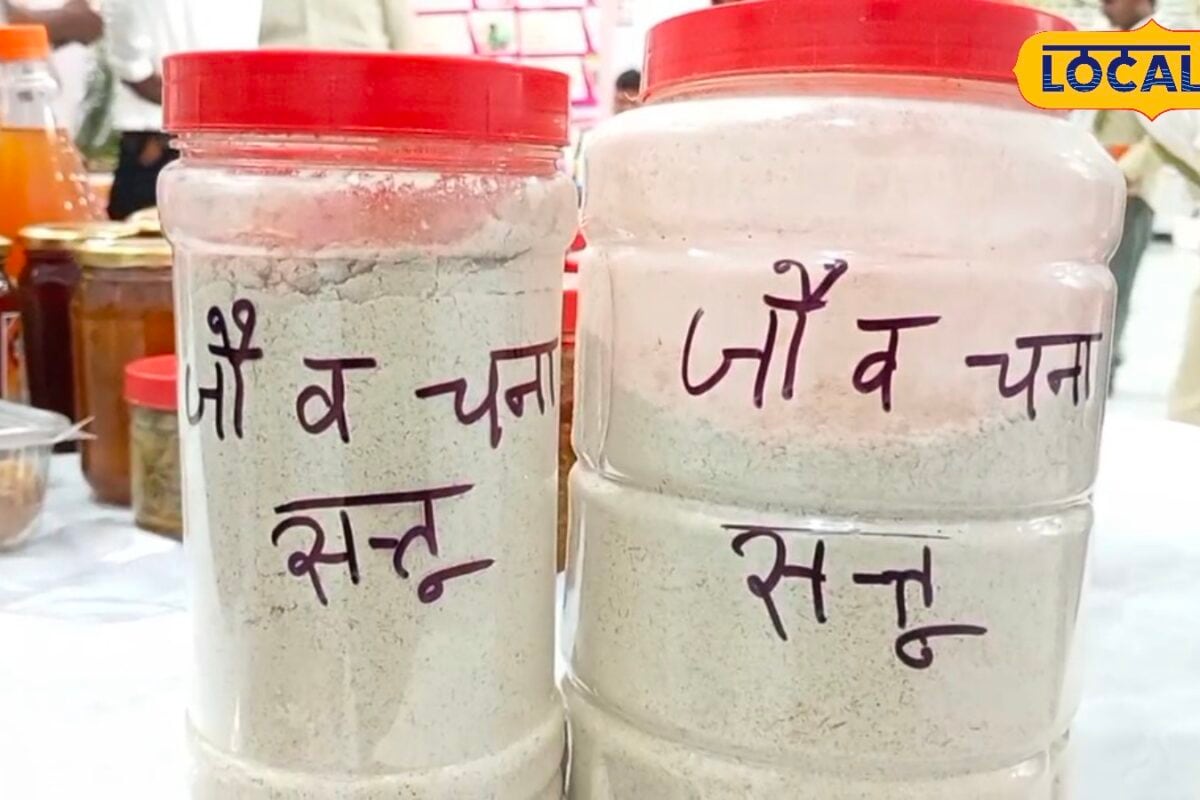 LOCAL
जौ व चना
सत्तू
जौ व चना
सत्तू